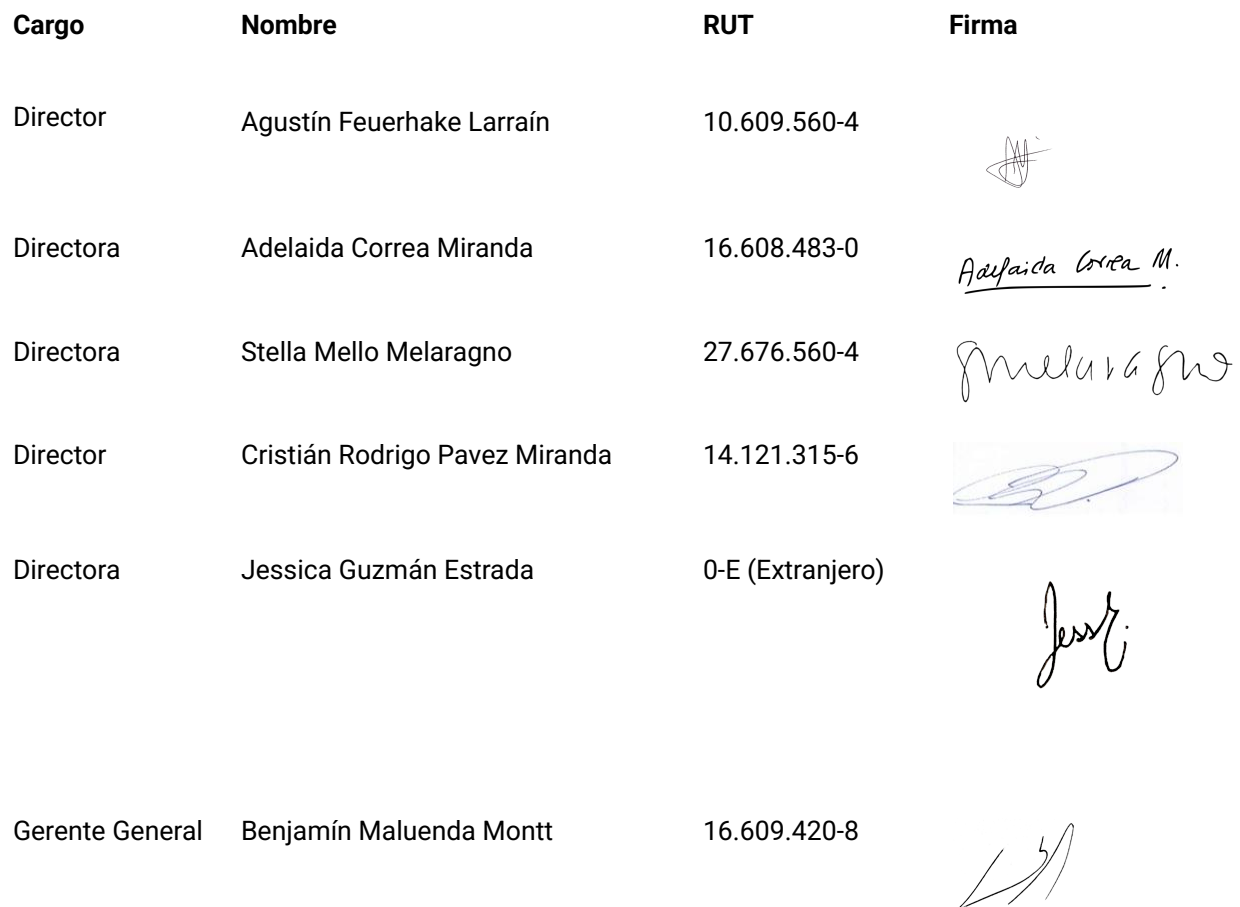 Cargo Nombre RUT Firma
Director Agustín Feuerhake Larraín 10.609.560-4
Directora Adelaida Correa Miranda 16.608.483-0 Adelaida Correa M.
Directora Stella Mello Melaragno 27.676.560-4 Smelaragno
Director Cristián Rodrigo Pavez Miranda 14.121.315-6
Directora Jessica Guzmán Estrada 0-E (Extranjero)
Gerente General Benjamín Maluenda Montt 16.609.420-8